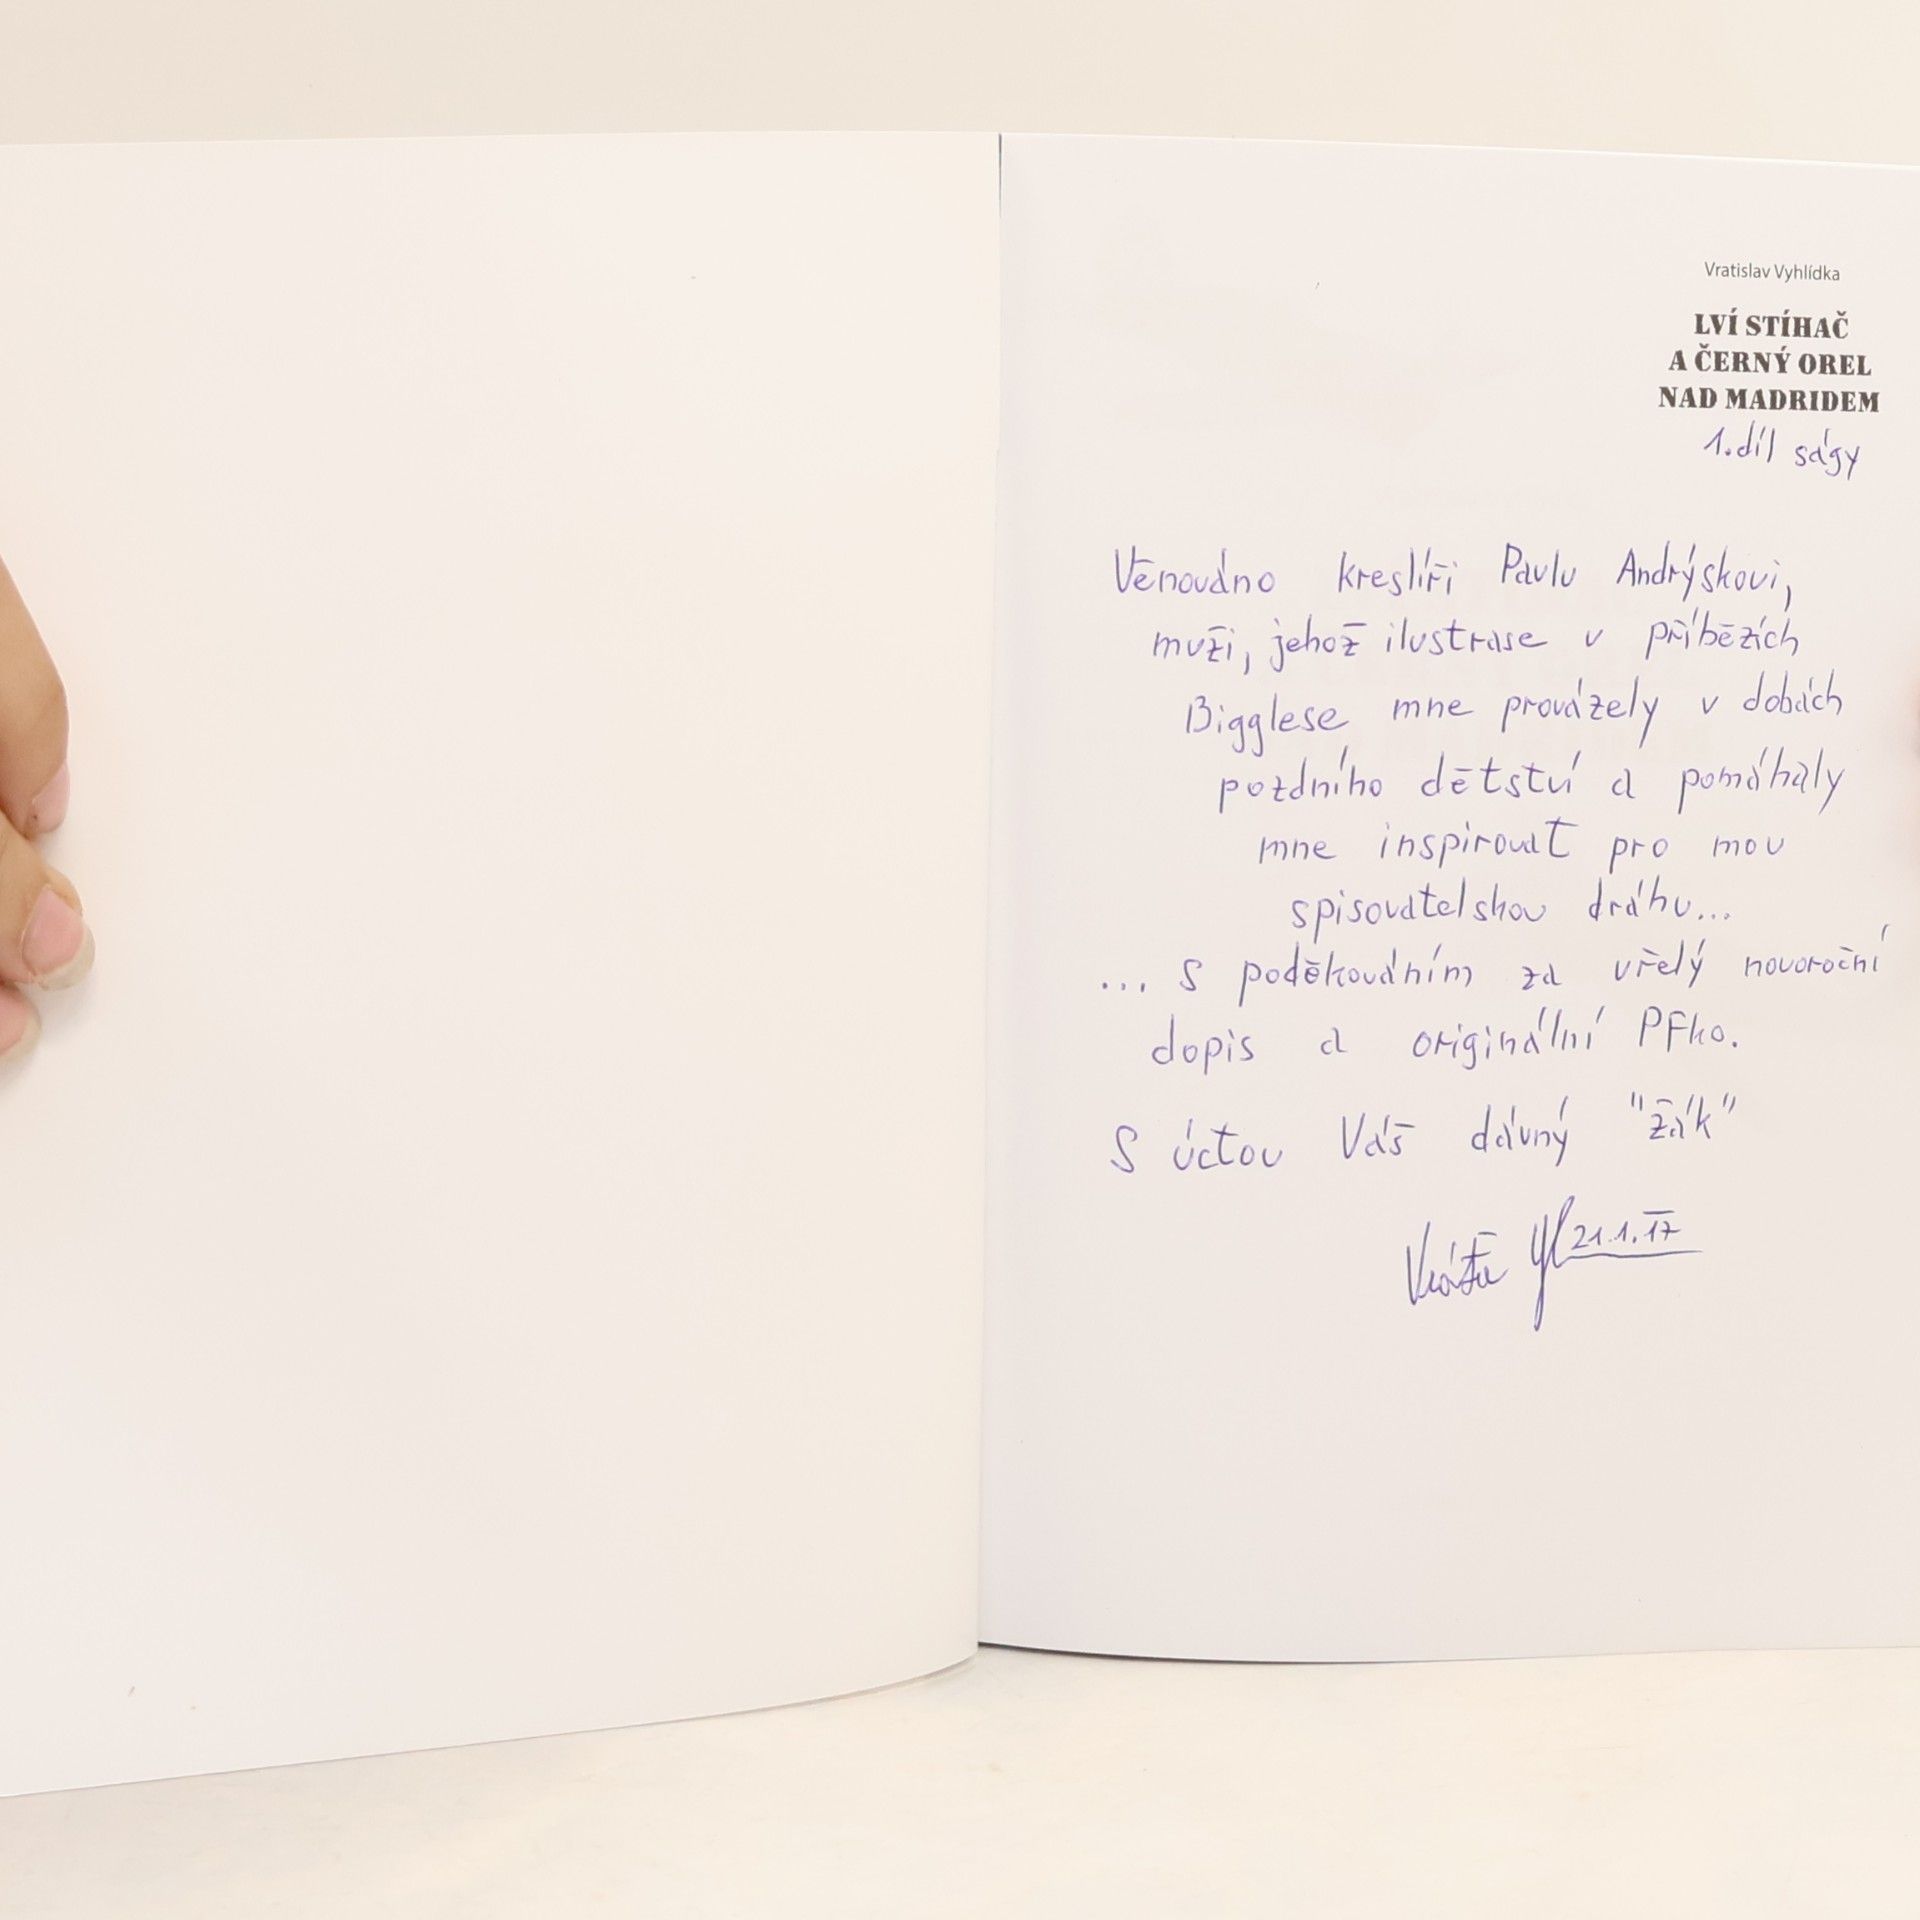 Vratislav Vyhlídka
LVÍ STÍHAČ
A ČERNÝ OREL
NAD MADRIDEM
1. díl ságy
Věnováno kreslíři Pavlu Andrýskovi,
muži, jehož ilustrase v příbězích
Bigglese mne provázely v dobách
pozdního dětství a pomáhaly
mne inspirovat pro mou
spisovatelskou dráhu...
... s poděkováním za vřelý novoroční
dopis a originální PFko.
S úctou Váš dávný "žák"
Vráťa 21.1.17